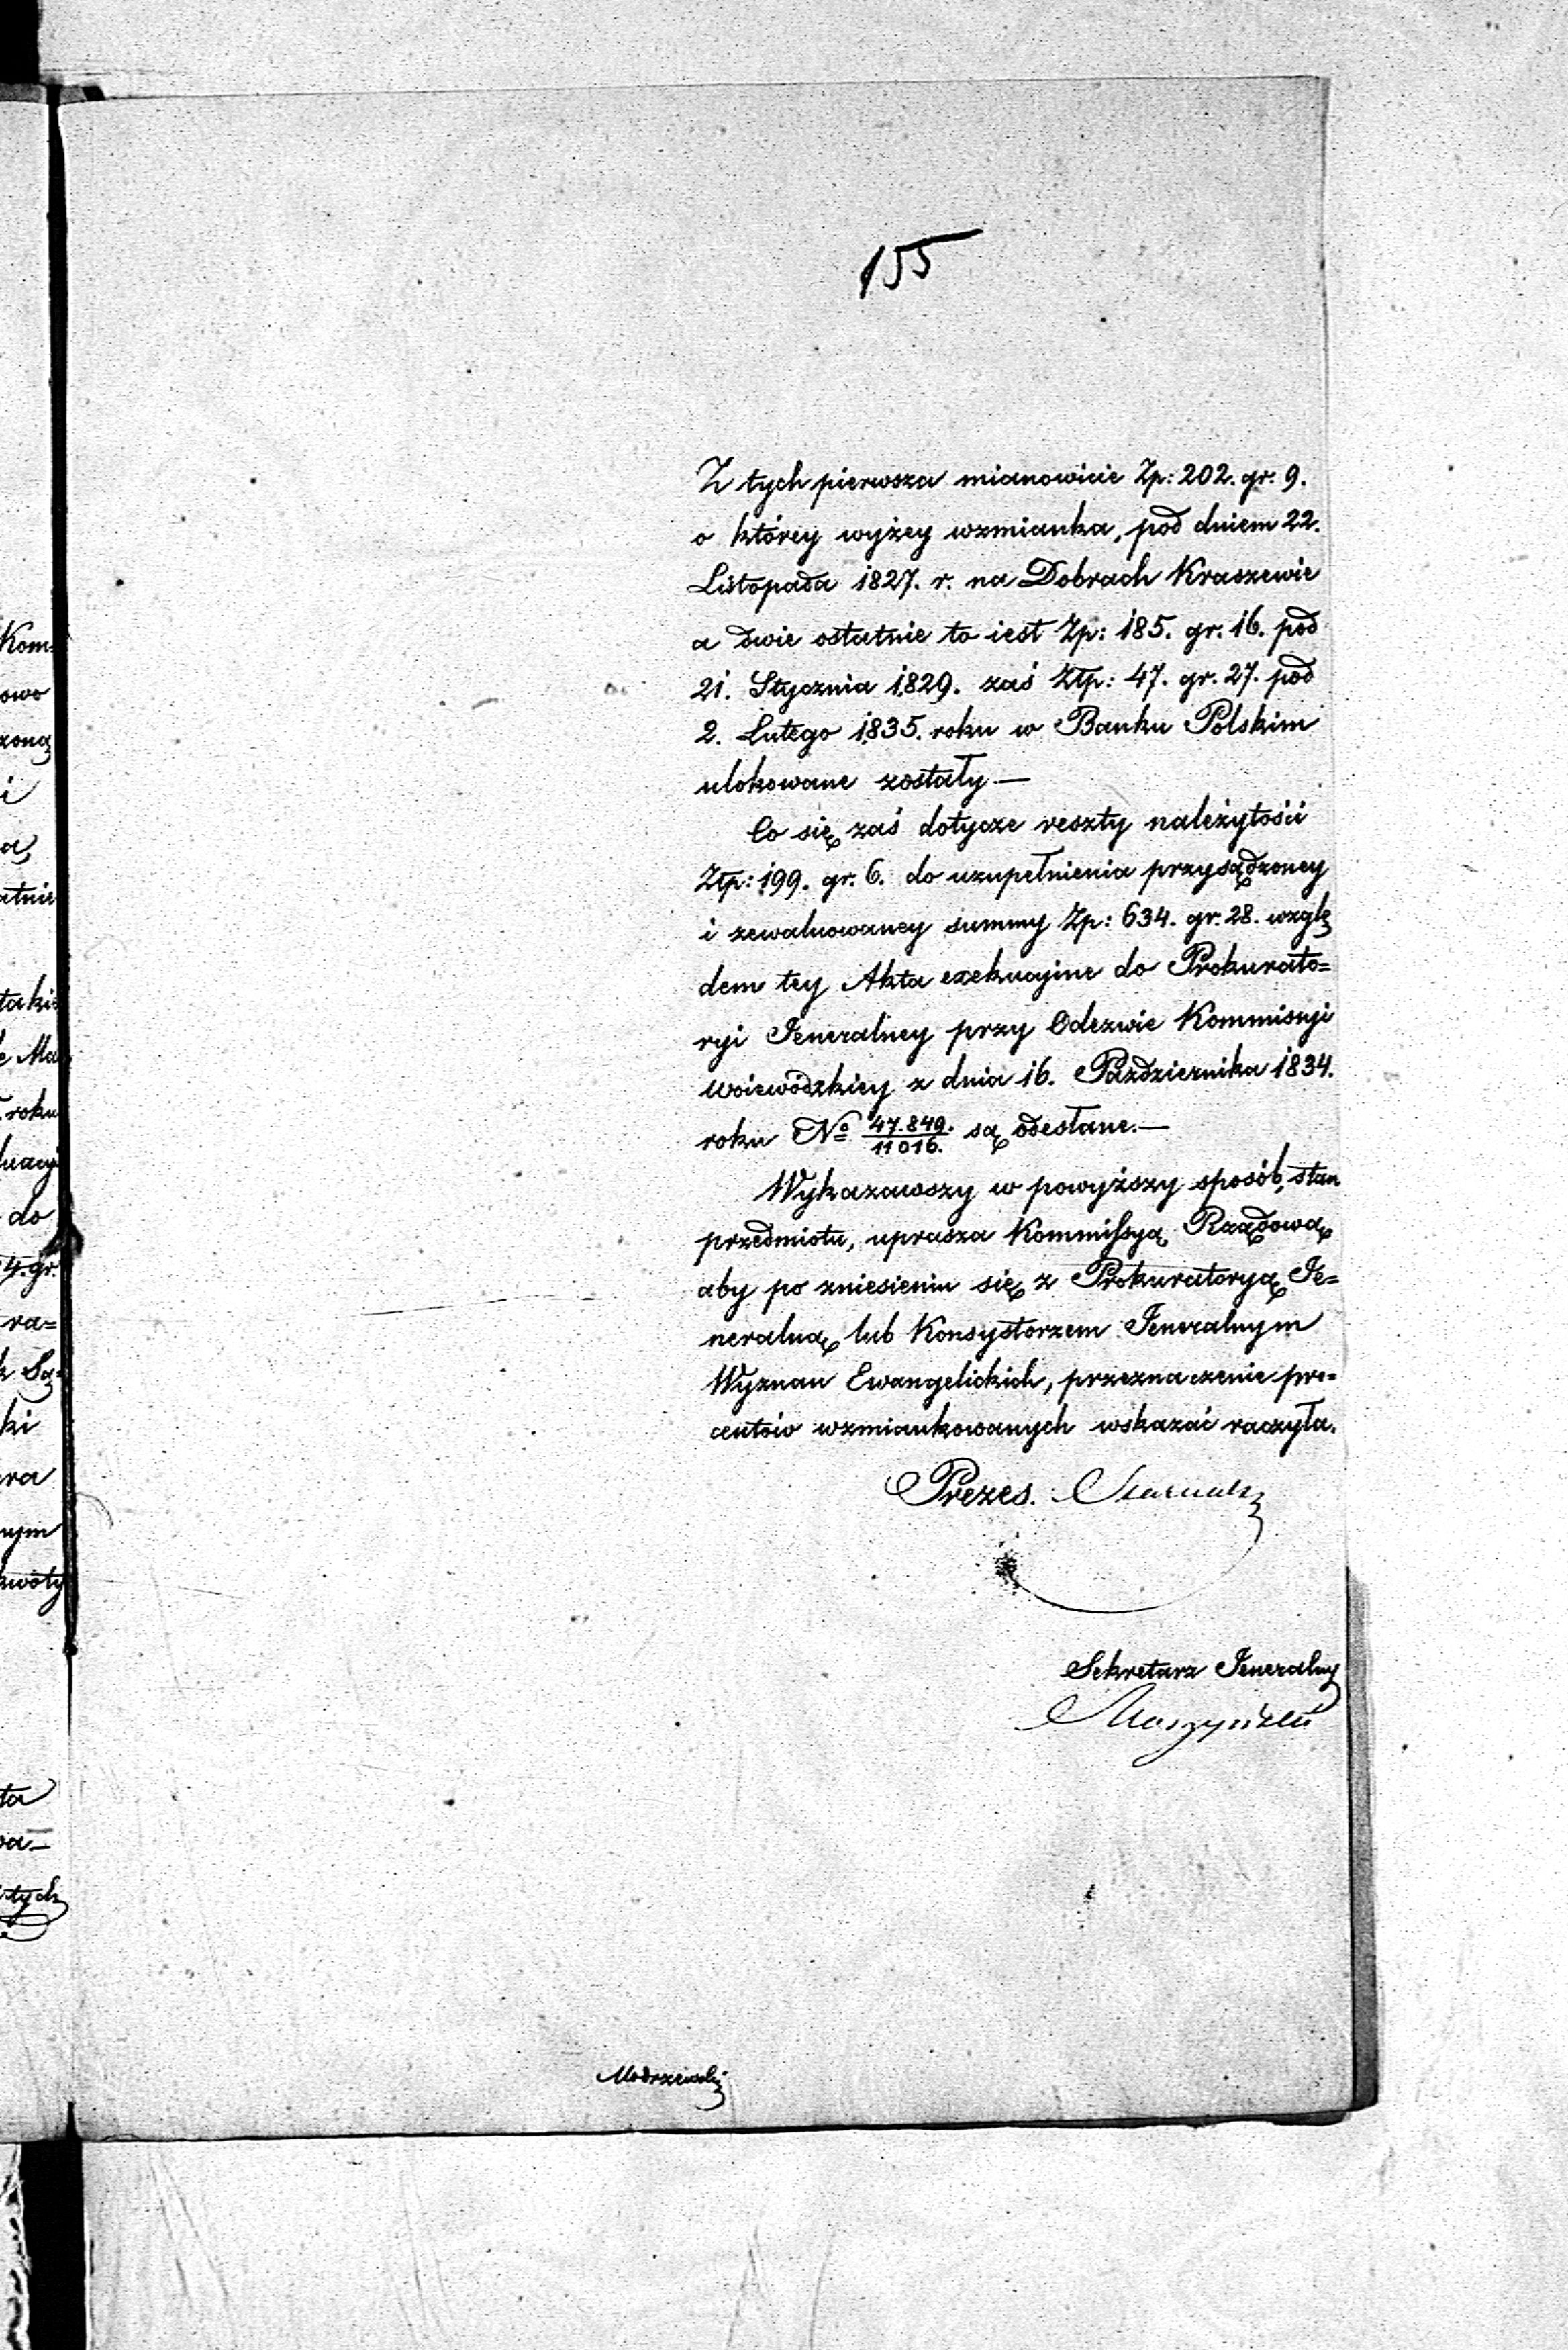 155
Z tych pierwsza mianowicie Zp: 202. gr. 9.
o którey wyżey wzmianka, pod dniem 22.
Listopada 1827. r. na Dobrach Kraszewie
a dwie ostatnie to iest Zp: 185. gr: 16. pod
21. Stycznia 1829. zaś Ztp: 47. gr. 27. pod
2. Lutego 1835. roku w Banku Polskim
ulokowane zostały.—
Co się zaś dotycze reszty należytości
Ztp: 199. gr. 6. do uzupełnienia przysądzoney
i zewaluowaney summy Zp: 634. gr: 28. wzglę
dem tey Akta exekucyjne do Prokurato=
ryi Jeneralney przy Odezwie Kommissyi
Woiewódzkiey z dnia 16. Października 1834.
roku No 47.849./11016. są odesłane.—
Wykazawszy w powyższy sposób, stan
przedmiotu, uprasza Kommissyą Rządową
aby po zniesieniu się z Prokuratoryą Je=
neralną lub Konsystorzem Jeneralnym
Wyznan Ewangelickich, przeznaczenie pro=
centów wzmiankowanych wskazać raczyła.
Prezes.
Sekretarz Jeneralny
Modrzewski
Kom=
owo
zoną
i
a,
atnie
takie
roku
do
4. gr.
ra=
ki
ra
nym
kwoty
ta
tych